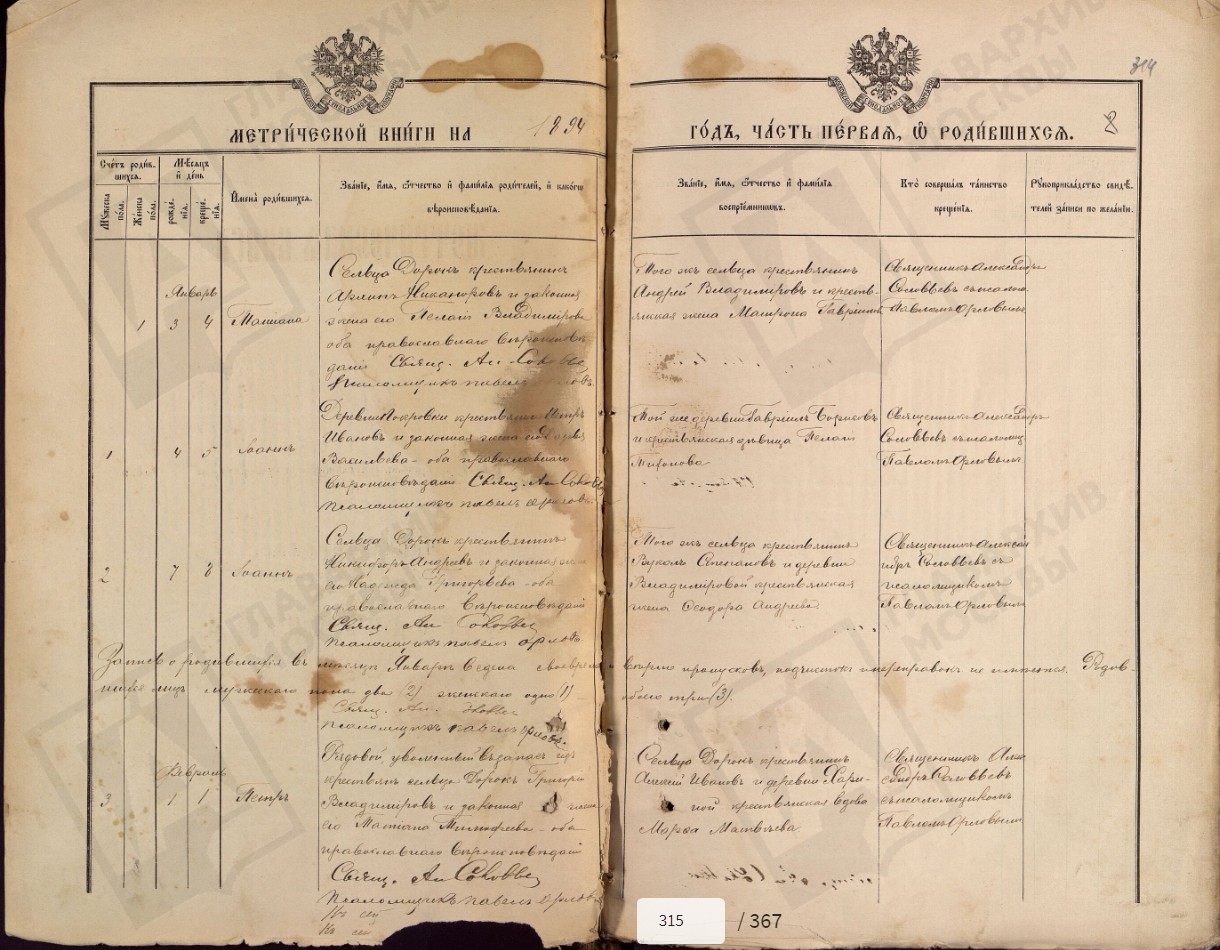 314
МЕТРИ́ЧЕСКОЙ КНИ́ГИ НА 1894
ГО́ДЪ, ЧА́СТЬ ПЕ́РВАЯ, Ѿ РОДИ́ВШИХСЯ. 8
Сче́тъ роди́в-
шихся.
Му́жеска по́ла.
Же́нска по́ла.
Мѣ́сяцъ
и҆ де́нь
рожде́-
нія.
креще́-
нія.
И҆мена̀ роди́вшихся.
Зва́ніе, и҆́мя, ѻ҆́тчество и҆ фами́лія роди́телей, и҆ како́гѡ
вѣроисповѣ́данія.
Зва́ніе, и҆́мя, ѻ҆́тчество и҆ фами́лія
воспріе́мниковъ.
Кто̀ соверша́лъ та́инство
креще́нія.
Рꙋкоприкла́дство свидѣ́-
телей за́писи по жела́нію.
Январь
1 3 4 Татіана
Сельца Доронъ крестьянинъ
Никаноровъ и законная
жена его Пелагія Владимірова
оба православнаго вѣроисповѣ-
данія Свящ. Ал Соловье
Псаломщикъ Павелъ Орловъ.
Того жъ сельца крестьянинъ
Андрей Владиміровъ и кресть-
янская жена Матрона Гавріил
Священникъ Александръ
Соловьевъ съ псалом
Павломъ Орловымъ
1 4 5 Іоаннъ
Деревни крестьянинъ Петръ
Ивановъ и законная жена его
Васильева - оба православнаго
вѣроисповѣданія Свящ. Ал Соловье
Псаломщикъ Павелъ Орловъ.
Той же деревни Гавріилъ Борисовъ
и крестьянская дѣвица Пелагія
Тихонова
Священникъ Александръ
Соловьевъ съ псаломщ
Павломъ Орловымъ
2 7 8 Іоаннъ
Сельца Доронъ крестьянинъ
Никифоръ Андреевъ и законная жена
его Надежда Григорьева - оба
православнаго вѣроисповѣданія
Свящ. Ал Соловье
Псаломщикъ Павелъ Орловъ
Того жъ сельца крестьянинъ
Вуколъ Степановъ и деревни
Владиміровой крестьянская
жена Ѳеодора Андреева
Священникъ Алексан
дръ Соловьевъ съ
псаломщикомъ
Павломъ Орловымъ
Запись о родившихся въ мѣсяцѣ Январѣ ведена своевременно
вѣрно пропусковъ, подчистокъ и переправокъ не имѣется. Родив-
шихся лицъ мужескаго пола два (2) женскаго одно (1)
обоего три (3).
Свящ. Ал. Соловье
Псаломщикъ Павелъ Орловъ.
Февраль
3 1 1 Петръ
Рядовой, уволенный въ запасъ изъ
крестьянъ сельца Доронъ Григорій
Владиміровъ и законная жена
его Татіана Тимоѳеева - оба
православнаго вѣроисповѣданія
Свящ. Ал Соловье
Псаломщикъ Павелъ Орловъ
Сельца Доронъ крестьянинъ
Алексій Ивановъ и деревни Хари-
ной крестьянская вдова
Марѳа Матвѣева
Священникъ Алек
сандръ Соловьевъ
съ псаломщикомъ
Павломъ Орловымъ
315 / 367
ГЛАВАРХИВ
МОСКВЫ